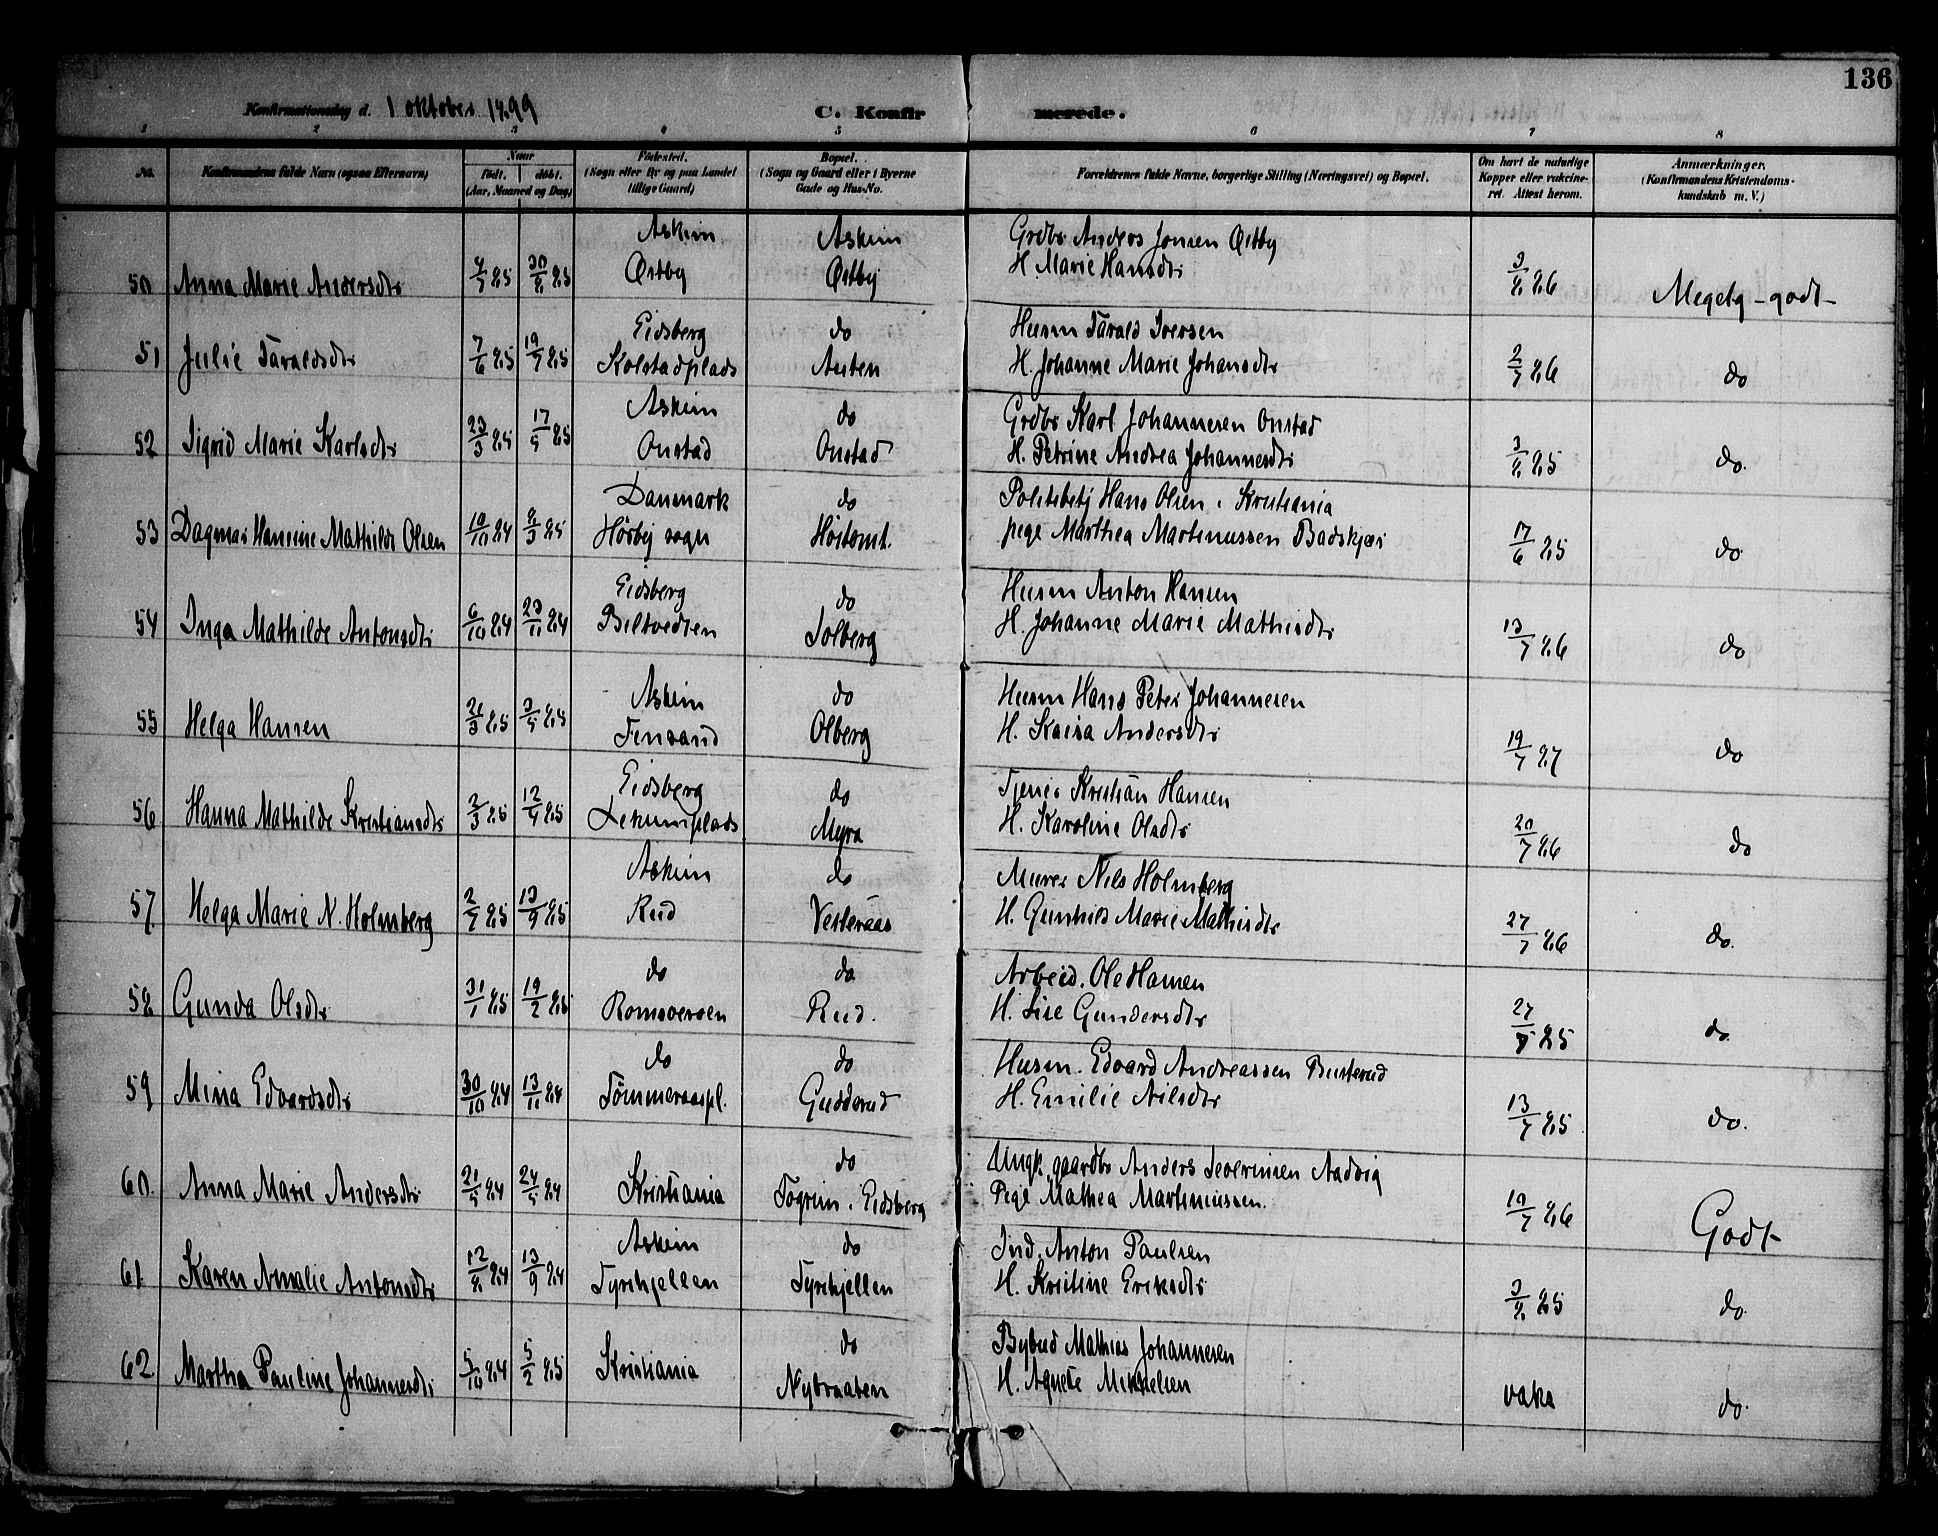 136
Konfirmationsdag d. 1 oktober 1899
C. Konfirmerede.
1 2 3 4 5 6 7 8
No.
Konfirmandens fulde Navn (ogsaa Efternavn)
Naar
født. døbt.
(Aar, Maaned og Dag)
Fødested.
(Sogn eller By og paa Landet
tillige Gaard)
Bopæl.
(Sogn og Gaard eller i Byerne
Gade og Hus-No.
Forældrenes fulde Navne, borgerlige Stilling (Næringsvei) og Bopæl.
Om havt de naturlige
Kopper eller vakcine-
ret. Attest herom.
Anmærkninger.
(Konfirmandens Kristendoms-
kundskab m. V.)
50 Anna Marie Andersdtr 4/7 85 30/8 85 Askim Østby Askim Østby
Grdbr Anders Jonsen Østby
H. Marie Hansdtr 3/8 86 Meget godt
51 Julie Taraldsdtr 7/6 85 19/7 85 Eidsberg Kolstadplads do Austen
Husm Tarald Iversen
H. Johanne Marie Johansdtr 2/7 86 do
52 Sigrid Marie Karlsdtr 23/3 85 17/5 85 Askim Onstad do Onstad
Grdbr Karl Johannesen Onstad
H. Petrine Andrea Johannesdtr 3/8 85 do.
53 Dagmar Hansine Mathilde Olsen 10/10 84 8/3 85 Danmark Hørby sogn do Høitomt.
Politibetj Hans Olsen i Kristiania
pige Marthea Martinussen Badskjær 17/6 85 do
54 Inga Mathilde Antonsdtr 6/10 84 23/11 84 Eidsberg Biltvedten do Solberg
Husm Anton Hansen
H. Johanne Marie Mathisdtr 13/7 86 do
55 Helga Hansen 21/3 85 3/5 85 Askim Finsand do Olberg
Husm Hans Peter Johannesen
H. Kaisa Andersdtr 19/7 87 do
56 Hanna Mathilde Kristiansdtr 2/3 85 12/4 85 Eidsberg Lekumplads do Myra
Tjener Kristian Hansen
H. Karoline Olsdtr 20/7 86 do
57. Helga Marie N. Holmberg 2/7 85 13/9 85 Askim Rud do Vesteraas
Murer Nils Holmberg
H. Gunhild Marie Mathisdtr 27/7 86 do.
58 Gunda Olsdtr 31/1 85 19/2 85 do Romsveroen do Rud.
Arbeid. Ole Hansen
H. Lise Gundersdtr 27/7 85 do.
59 Mina Edvardsdtr 30/10 84 13/11 84 do Tømmeraaspl. do Gudderud
Husm. Edvard Andreassen Busterud
H. Emilie Nilsdtr 13/7 85 do.
60. Anna Marie Andersdtr 21/5 84 24/5 84 Kristiania do Togrim. Eidsberg
Ungk. gaardbr Anders Severinsen Aadvig
Pige Mathea Martinussen. 19/7 86 Godt
61 Karen Amalie Antonsdtr 12/8 84 13/9 84 Askim Tyrihjellen do Tyrihjellen
Ind. Anton Paulsen
H. Kristine Eriksdtr 3/8 85 do
62 Martha Pauline Johannesdtr 5/10 84 5/2 85 Kristiania do Nybraaten
Bybud Mathias Johannesen
H. Agnete Mikkelsen vaks do.